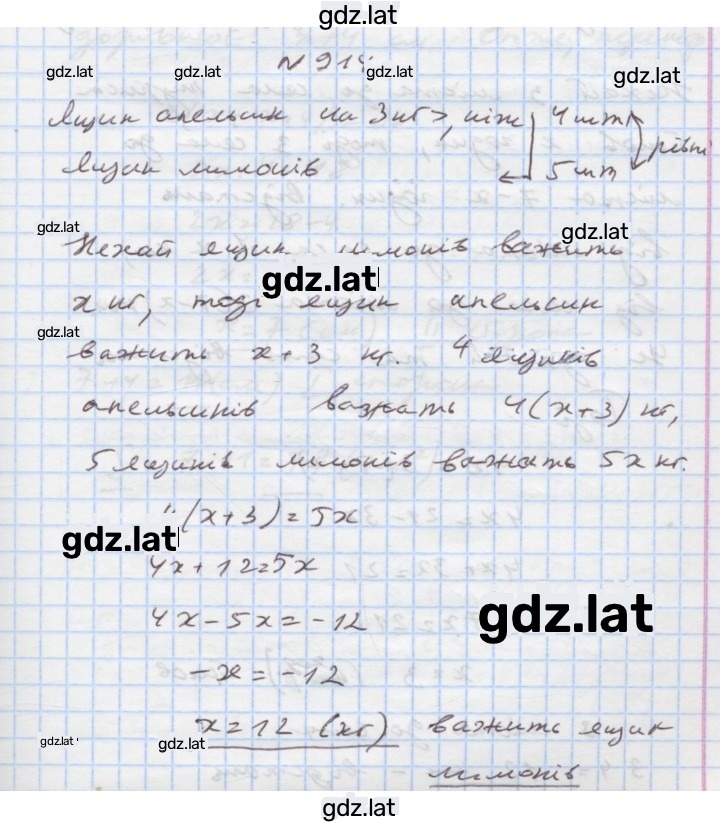 gdz.lat
№ 914
gdz.lat gdz.lat gdz.lat gdz.lat
Ящик апельсин на 3 кг >, ніж 4 шт
Ящик лимонів 5 шт рівні
gdz.lat gdz.lat
Нехай ящик лимонів важить
gdz.lat
x кг, тоді ящик апельсин
gdz.lat
важить x + 3 кг. 4 ящиків
апельсинів важать 4(x+3) кг,
5 ящиків лимонів важать 5x кг.
(x+3) = 5x
gdz.lat
4x + 12 = 5x
gdz.lat
4x - 5x = -12
-x = -12
x = 12 (кг) важить ящик
gdz.lat gdz.lat
лимонів
gdz.lat